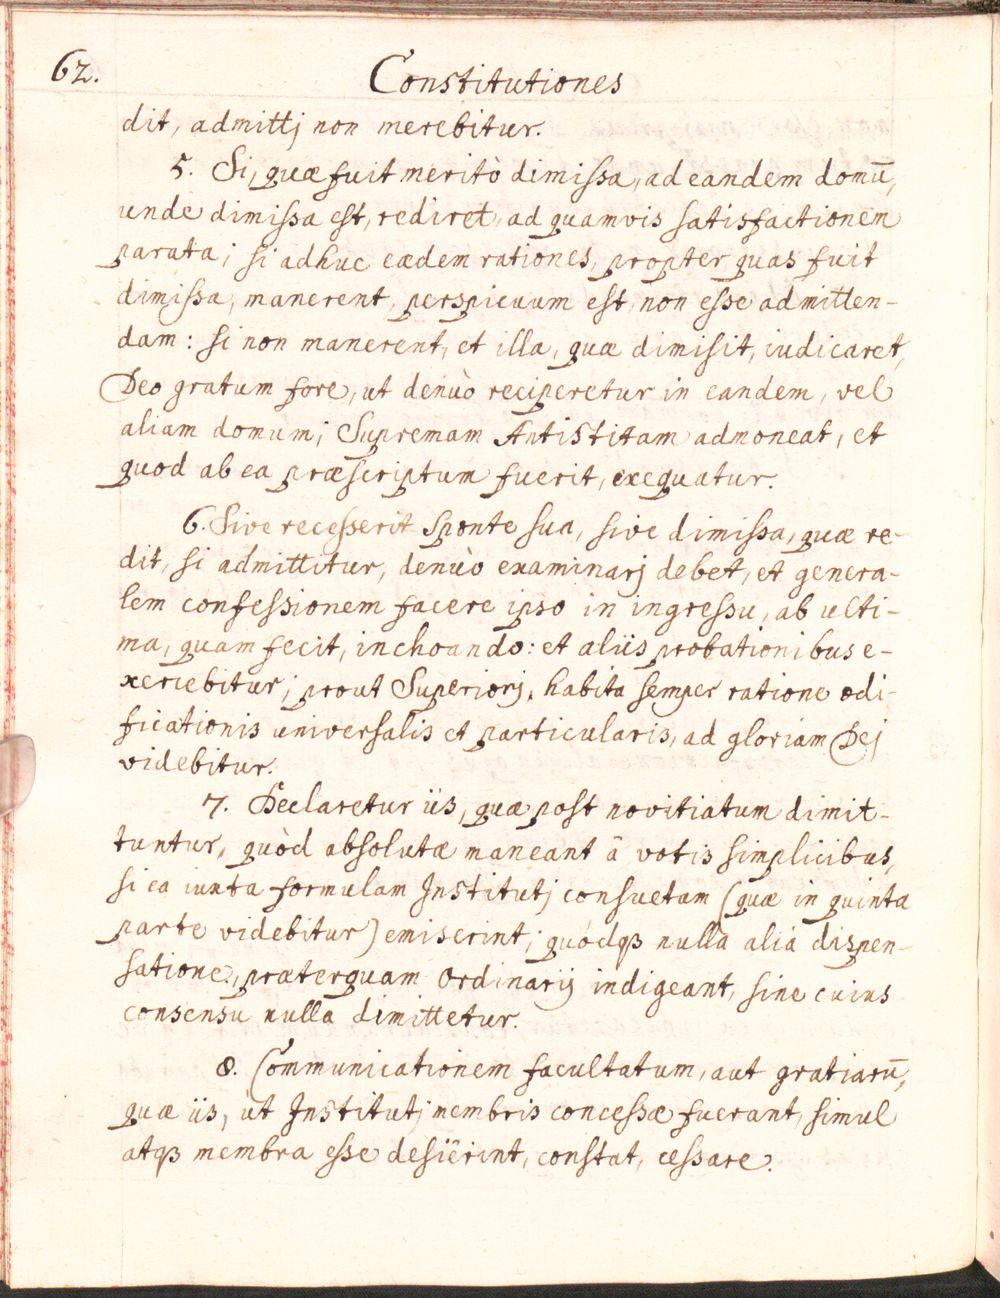 62.
Constitutiones
dit, admittj non merebitur.
5. Si, quæ fuit meritò dimissa, ad eandem domū,
unde dimissa est, rediret, ad quamvis satisfactionem
parata; si adhuc eædem rationes, propter quas fuit
dimissa, manerent, perspicuum est, non esse admitten-
dam: si non manerent, et illa, quæ dimisit, iudicaret,
Deo gratum fore, ut denùo reciperetur in eandem, vel
aliam domum; Supremam Antistitam admoneat, et
quod ab ea præscriptum fuerit, exequatur.
6. Sive recesserit sponte sua, sive dimissa, quæ re-
dit, si admittitur, denùo examinarj debet, et genera-
lem confessionem facere ipso in ingressu, ab ulti-
ma, quam fecit, inchoando: et aliis probationibus e-
xercebitur; prout Superiorj, habita semper ratione ædi-
ficationis universalis et particularis, ad gloriam Dej
videbitur.
7. Declaretur iis, quæ post novitiatum dimit-
tuntur, quòd absolutæ maneant â votis simplicibus,
si ea iuxta formulam Institutj consuetam (quæ in quinta
parte videbitur) emiserint; quódqȝ nulla aliá dispen-
satione, præterquam Ordinarij indigeant, sine cuius
consensu nulla dimittetur.
8. Communicationem facultatum, aut gratiarū,
quæ iis, ùt Institutj membris concessæ fuerant, simul
atqȝ membra esse desiërint, constat, cessare.